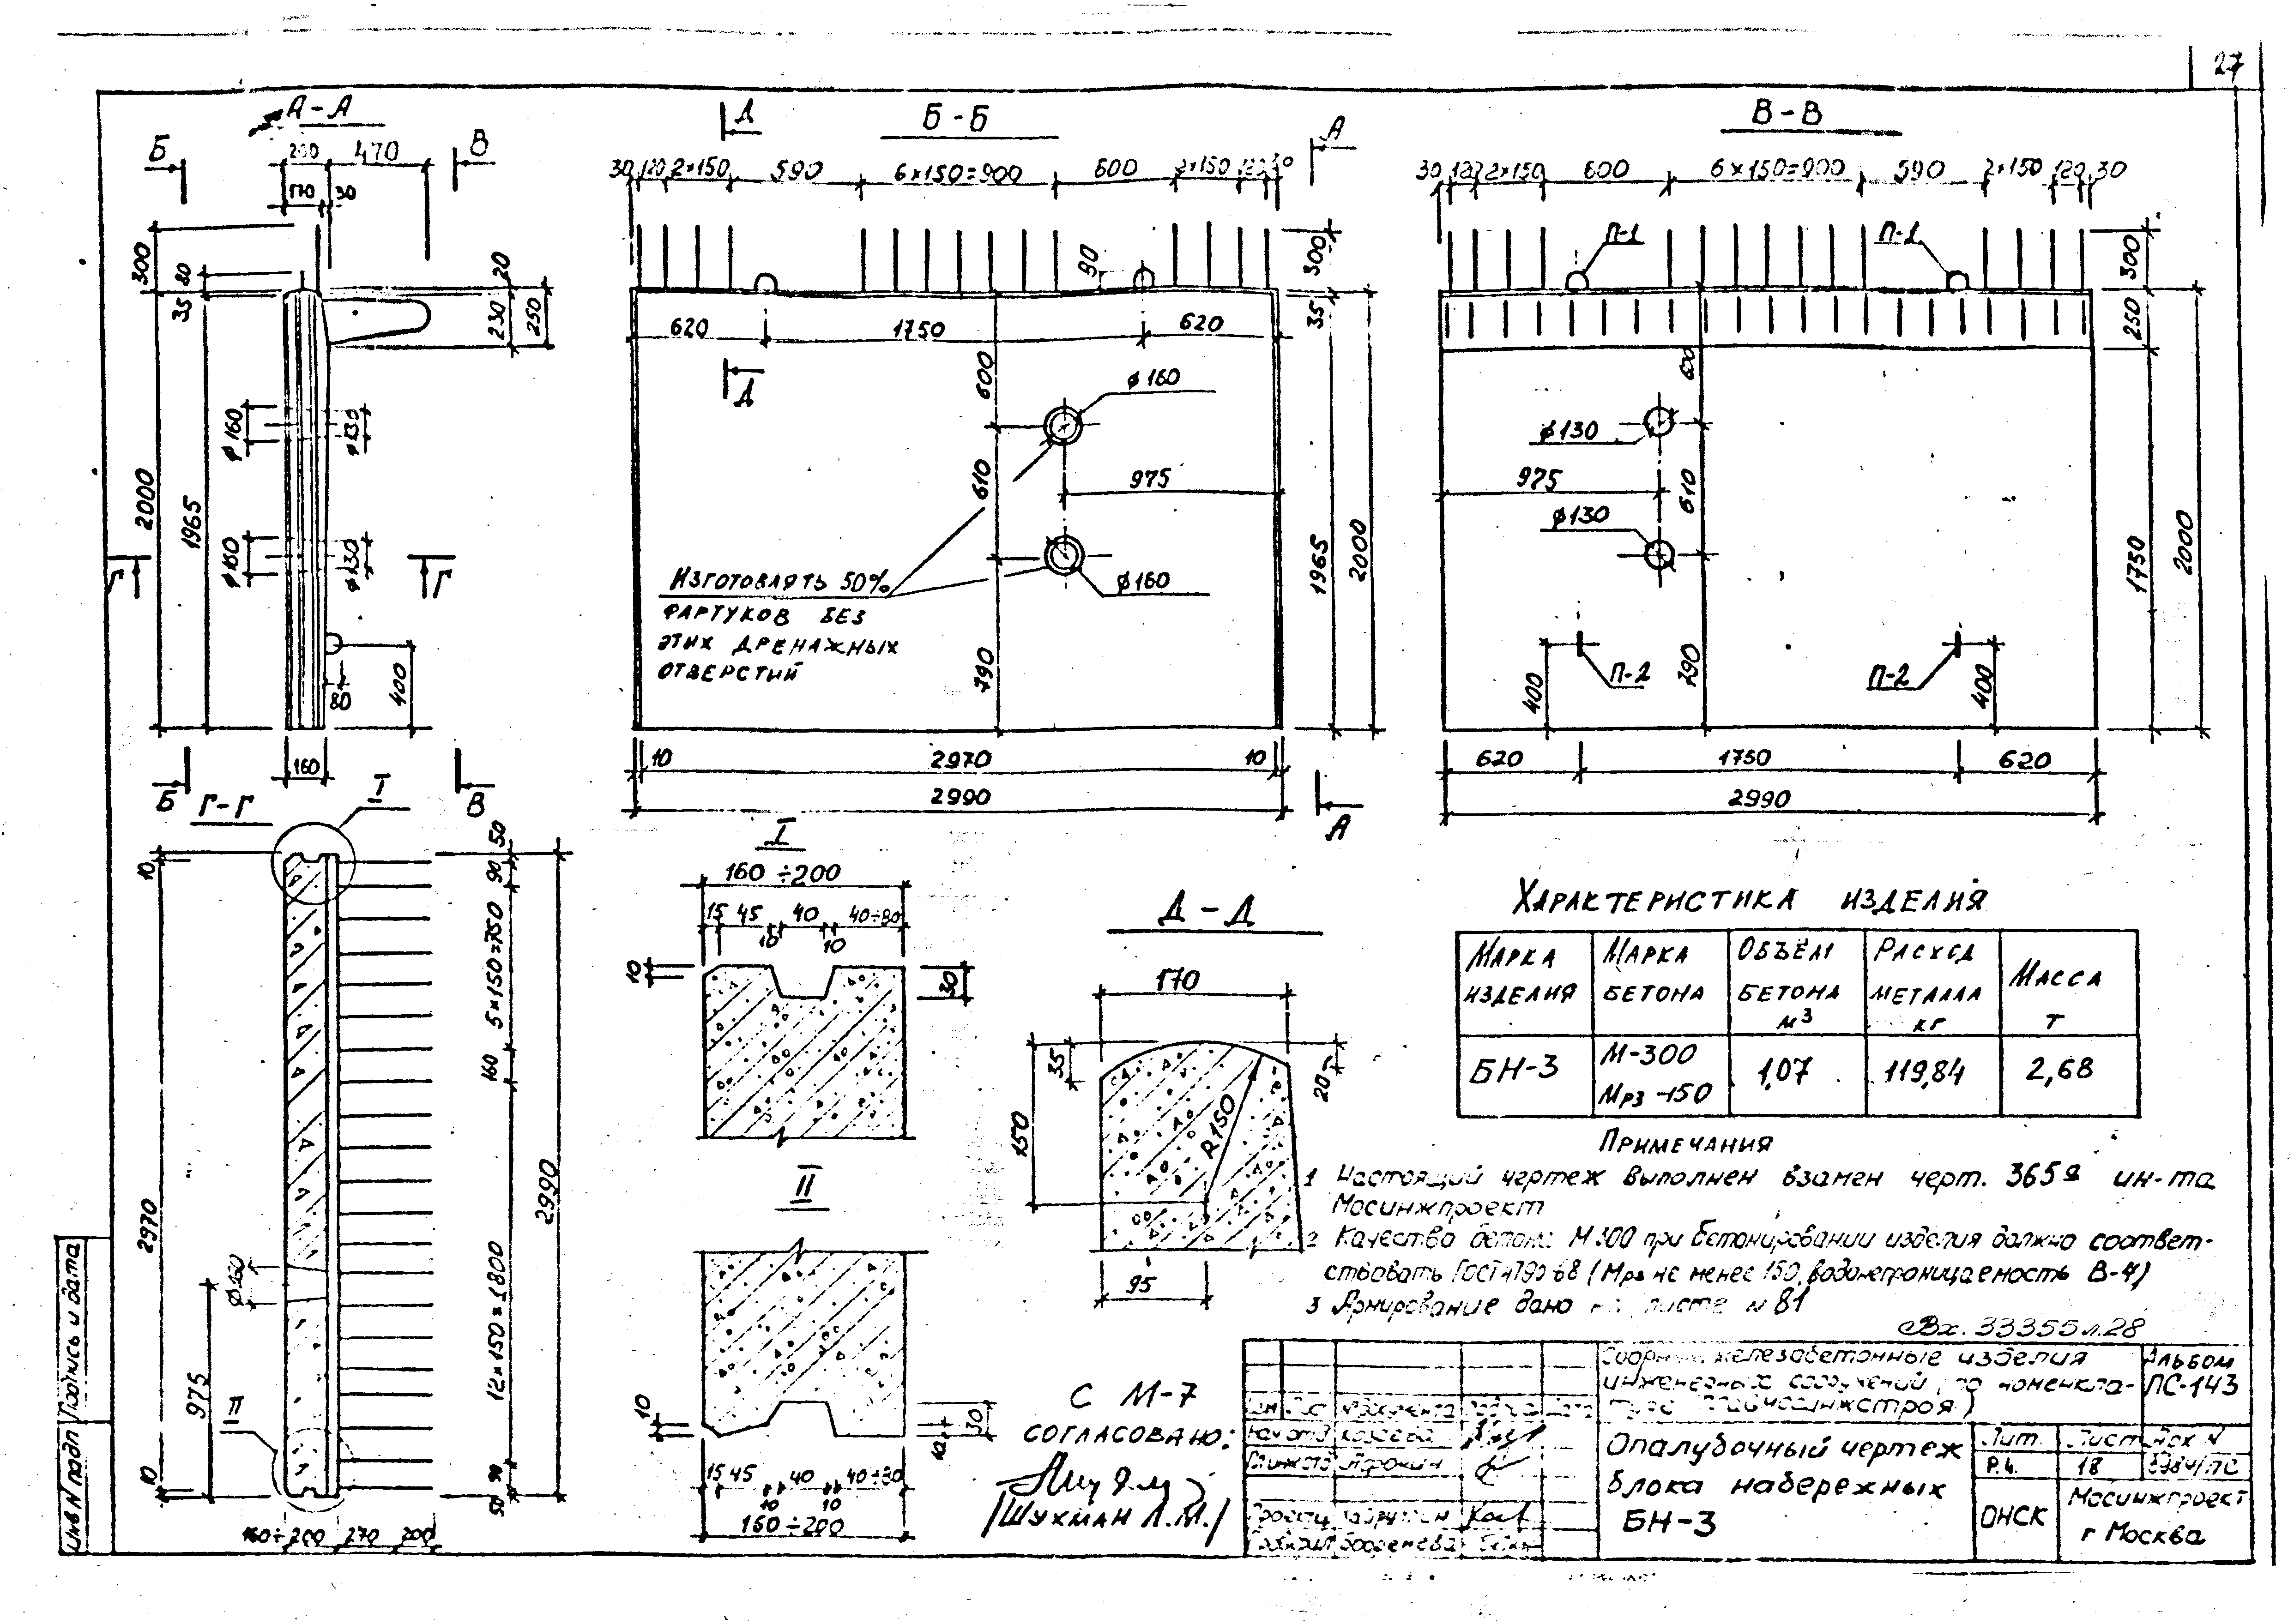 27
А-А
Б
В
200
470
170
30
300
80
35
20
230
250
ø160
ø130
2000
1965
ø160
ø130
Г
Г
80
400
160
Б
В
Б-Б
Д
А
30 120 2×150 590 6×150=900 600 2×150 120 30
90
300
35
620
1750
620
Д
600
ø160
610
975
ø160
Изготовлять 50%
фартуков без
этих дренажных
отверстий
790
1965
2000
10
2970
10
2990
А
В-В
30 120 2×150 600 6×150=900 590 2×150 120 30
П-1
П-1
300
250
600
ø130
975
610
ø130
1750
2000
П-2
П-2
400
290
400
620
1750
620
2990
Г-Г
I
10
50
90
5×150=750
160
2970
2990
ø160
12×150=1800
975
II
10
90
50
160÷200
270
200
I
160÷200
15 45 40 40÷80
10 10
10
30
II
10
10
30
15 45 40 40÷80
10 10
160÷200
Д-Д
170
35
20
150
R150
95
Характеристика изделия
Марка изделия
Марка бетона
Объём бетона м³
Расход металла кг
Масса т
БН-3
М-300
Мрз-150
1,07
119,84
2,68
Примечания
1 Настоящий чертеж выполнен взамен черт. 3659 ин-та
Мосинжпроект
2 Качество бетона М300 при бетонировании изделия должно соответ-
ствовать ГОСТ 4795-68 (Мрз не менее 150, водонепроницаемость В-4)
3 Армирование дано на листе N 81
Вх. 33355 л.28
С М-7
согласовано:
/Шухман Л.М./
железобетонные изделия
инженерных сооружений по номенкла-
Альбом
ПС-143
Опалубочный чертеж
блока набережных
БН-3
Лит. Лист Док N
Р.ч. 18
ОНСК
Мосинжпроект
г Москва
Подпись и дата
Инв N подл